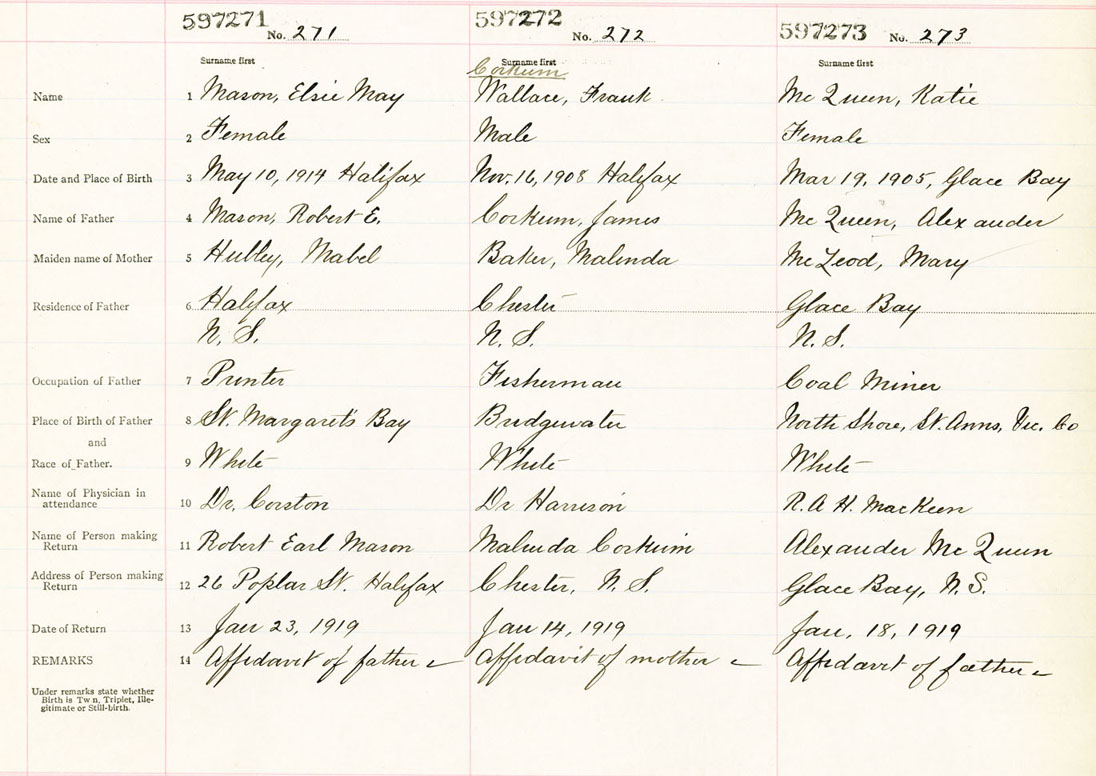 597271 No. 271 597272 No. 272 597273 No. 273
Surname first Surname first Surname first
Corkum
Name 1 Mason, Elsie May Wallace, Frank McQueen, Katie
Sex 2 Female Male Female
Date and Place of Birth 3 May 10, 1914 Halifax Nov. 16, 1908 Halifax Mar 19, 1905, Glace Bay
Name of Father 4 Mason, Robert E. Corkum, James McQueen, Alexander
Maiden name of Mother 5 Hubley, Mabel Baker, Malinda McLeod, Mary
Residence of Father 6 Halifax Chester Glace Bay
N. S. N. S. N. S.
Occupation of Father 7 Printer Fisherman Coal Miner
Place of Birth of Father 8 St. Margaret's Bay Bridgewater North Shore, St. Anns, Vic. Co
and
Race of Father. 9 White White White
Name of Physician in
attendance 10 Dr. Corston Dr Harrison R. A H. MacKeen
Name of Person making
Return 11 Robert Earl Mason Malinda Corkum Alexander McQueen
Address of Person making
Return 12 26 Poplar St. Halifax Chester, N. S. Glace Bay, N. S.
Date of Return 13 Jan 23, 1919 Jan 14, 1919 Jan. 18, 1919
REMARKS 14 Affidavit of father Affidavit of mother Affidavit of father
Under remarks state whether
Birth is Tw n, Triplet, Ille-
gitimate or Still-birth.